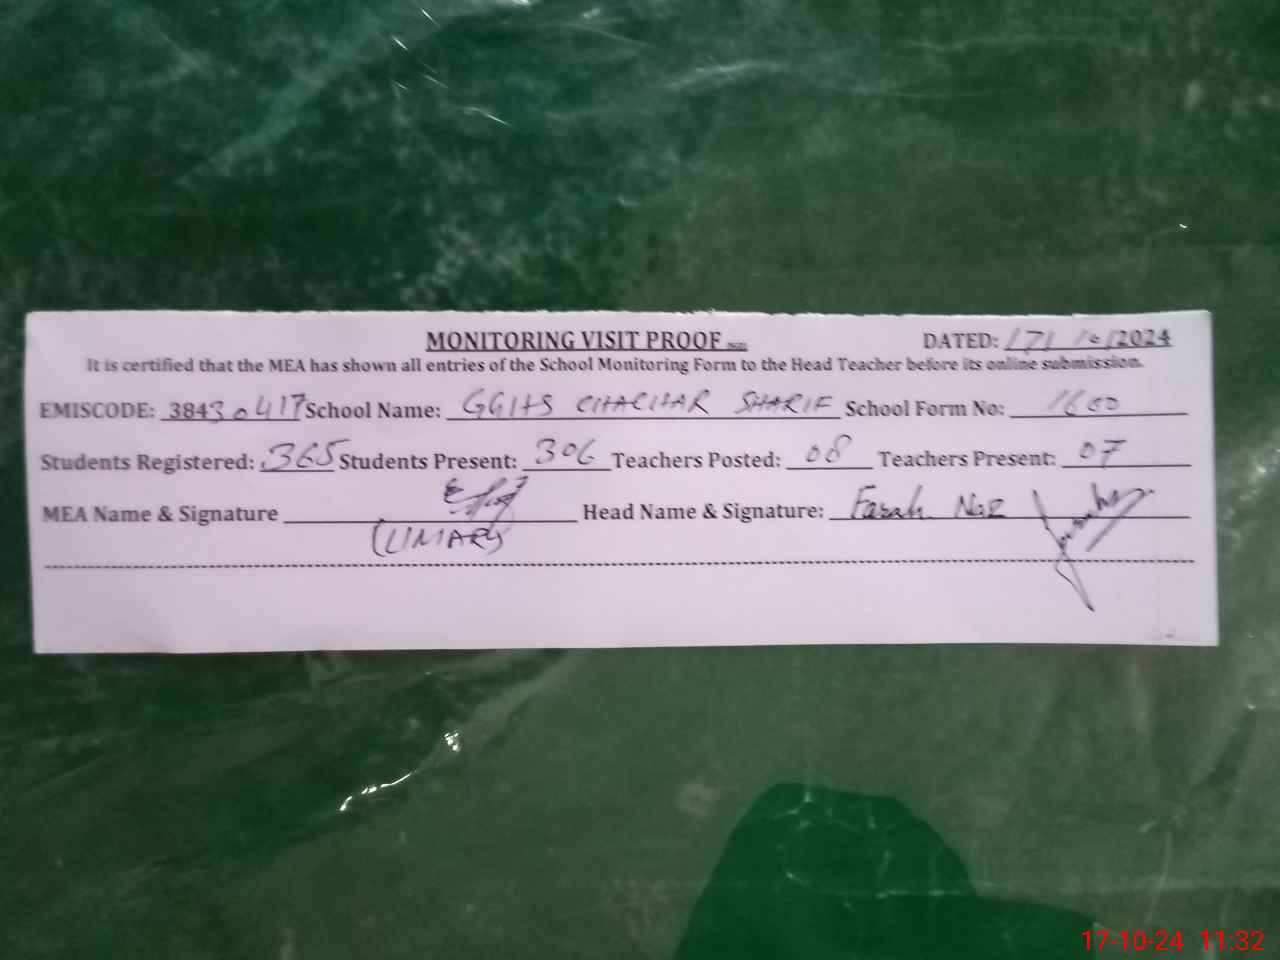 MONITORING VISIT PROOF DATED: 17/10/2024
It is certified that the MEA has shown all entries of the School Monitoring Form to the Head Teacher before its online submission.
EMISCODE: 38430417 School Name: GGHS CHACHAR SHARIF School Form No: 1600
Students Registered: 365 Students Present: 306 Teachers Posted: 08 Teachers Present: 07
MEA Name & Signature Head Name & Signature: Farah Naz
(UMAR)
17-10-24 11:32